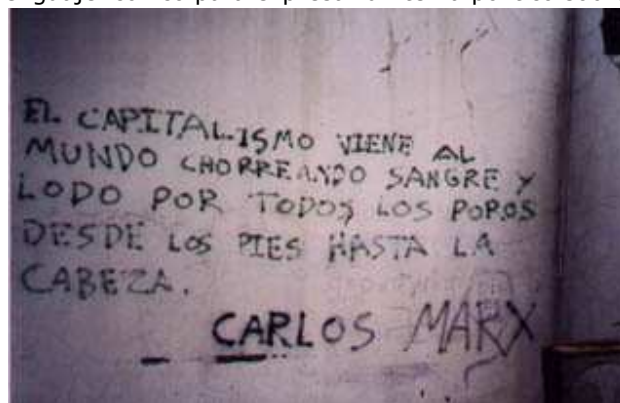 EL CAPITALISMO VIENE AL
MUNDO CHORREANDO SANGRE Y
LODO POR TODOS LOS POROS
DESDE LOS PIES HASTA LA
CABEZA.
CARLOS MARX